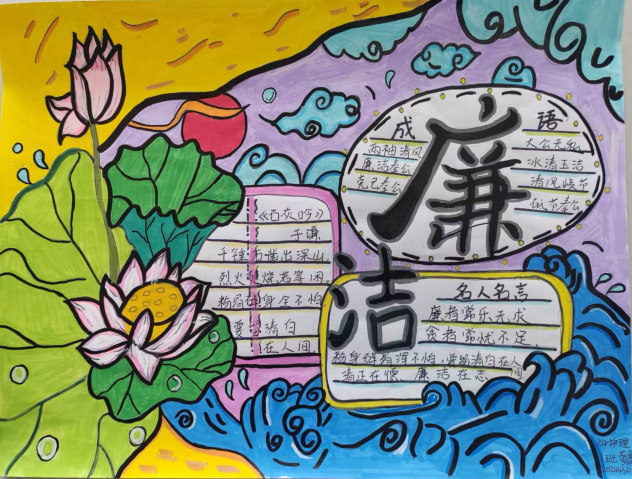 廉
洁
成语
两袖清风
廉洁奉公
克己奉公
大公无私
冰清玉洁
清风峻节
砥节奉公
《石灰吟》
于谦
千锤万凿出深山
烈火焚烧若等闲
粉骨碎身全不怕
要留清白
在人间
名人名言
廉者常乐无求
贪者常忧不足.
粉身碎骨浑不怕,要留清白在人间